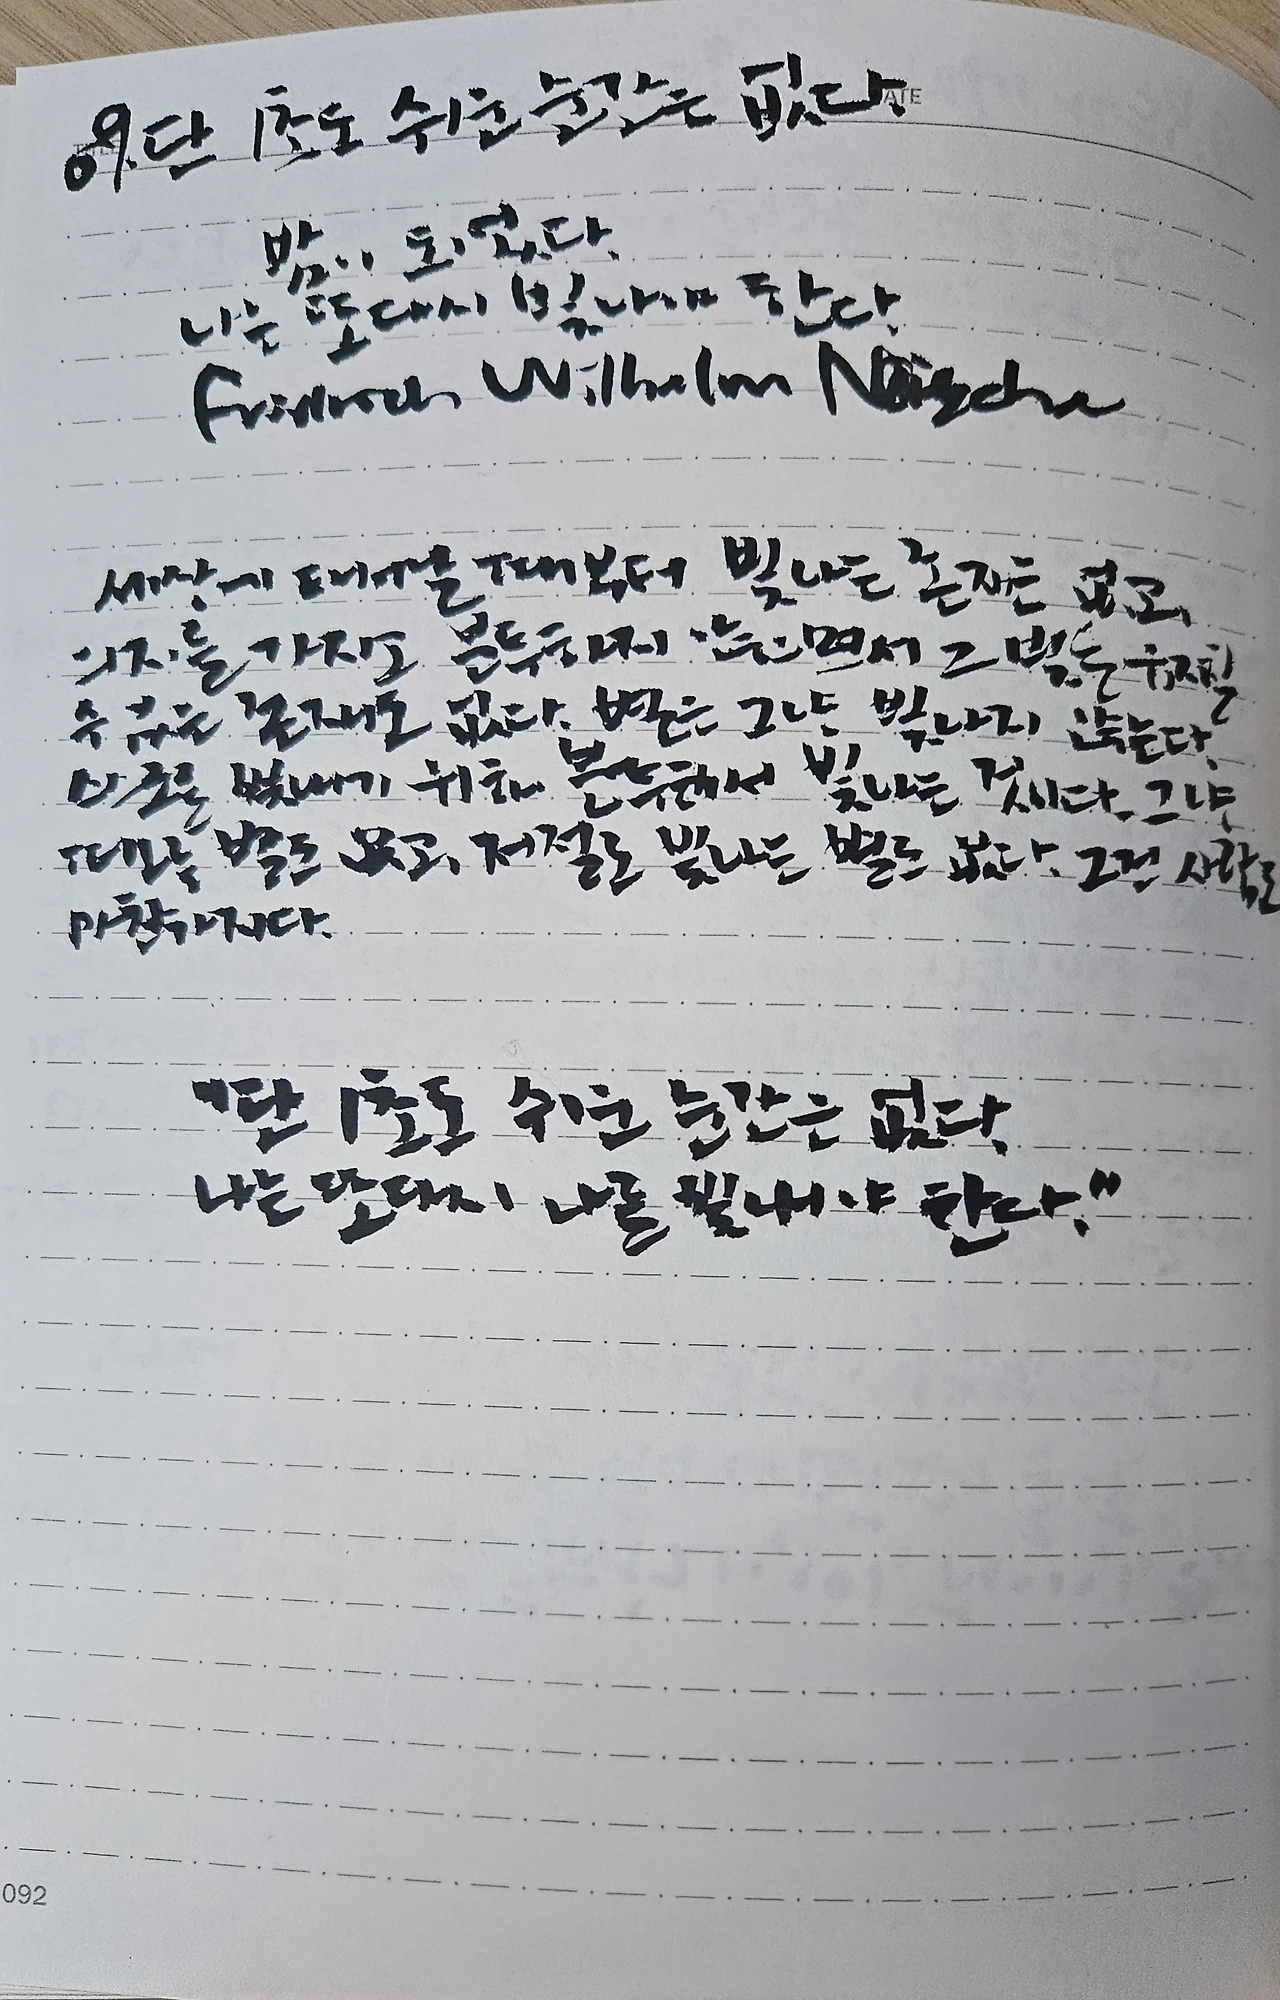 09. 단 1초도 쉬운 순간은 없다.
DATE
밤이 되었다.
나는 또다시 빛나야 한다.
Friedrich Wilhelm Nietzsche
세상에 태어날 때부터 빛나는 존재는 없고,
의지를 가지고 분투하지 않으면서 그 빛을 유지할
수 있는 존재도 없다. 별은 그냥 빛나지 않는다.
스스로를 빛내기 위해 분투해서 빛나는 것이다. 그냥
별도 없고, 저절로 빛나는 별도 없다. 그건 사람도
마찬가지다.
"단 1초도 쉬운 순간은 없다.
나는 또다시 나를 빛내야 한다."
092